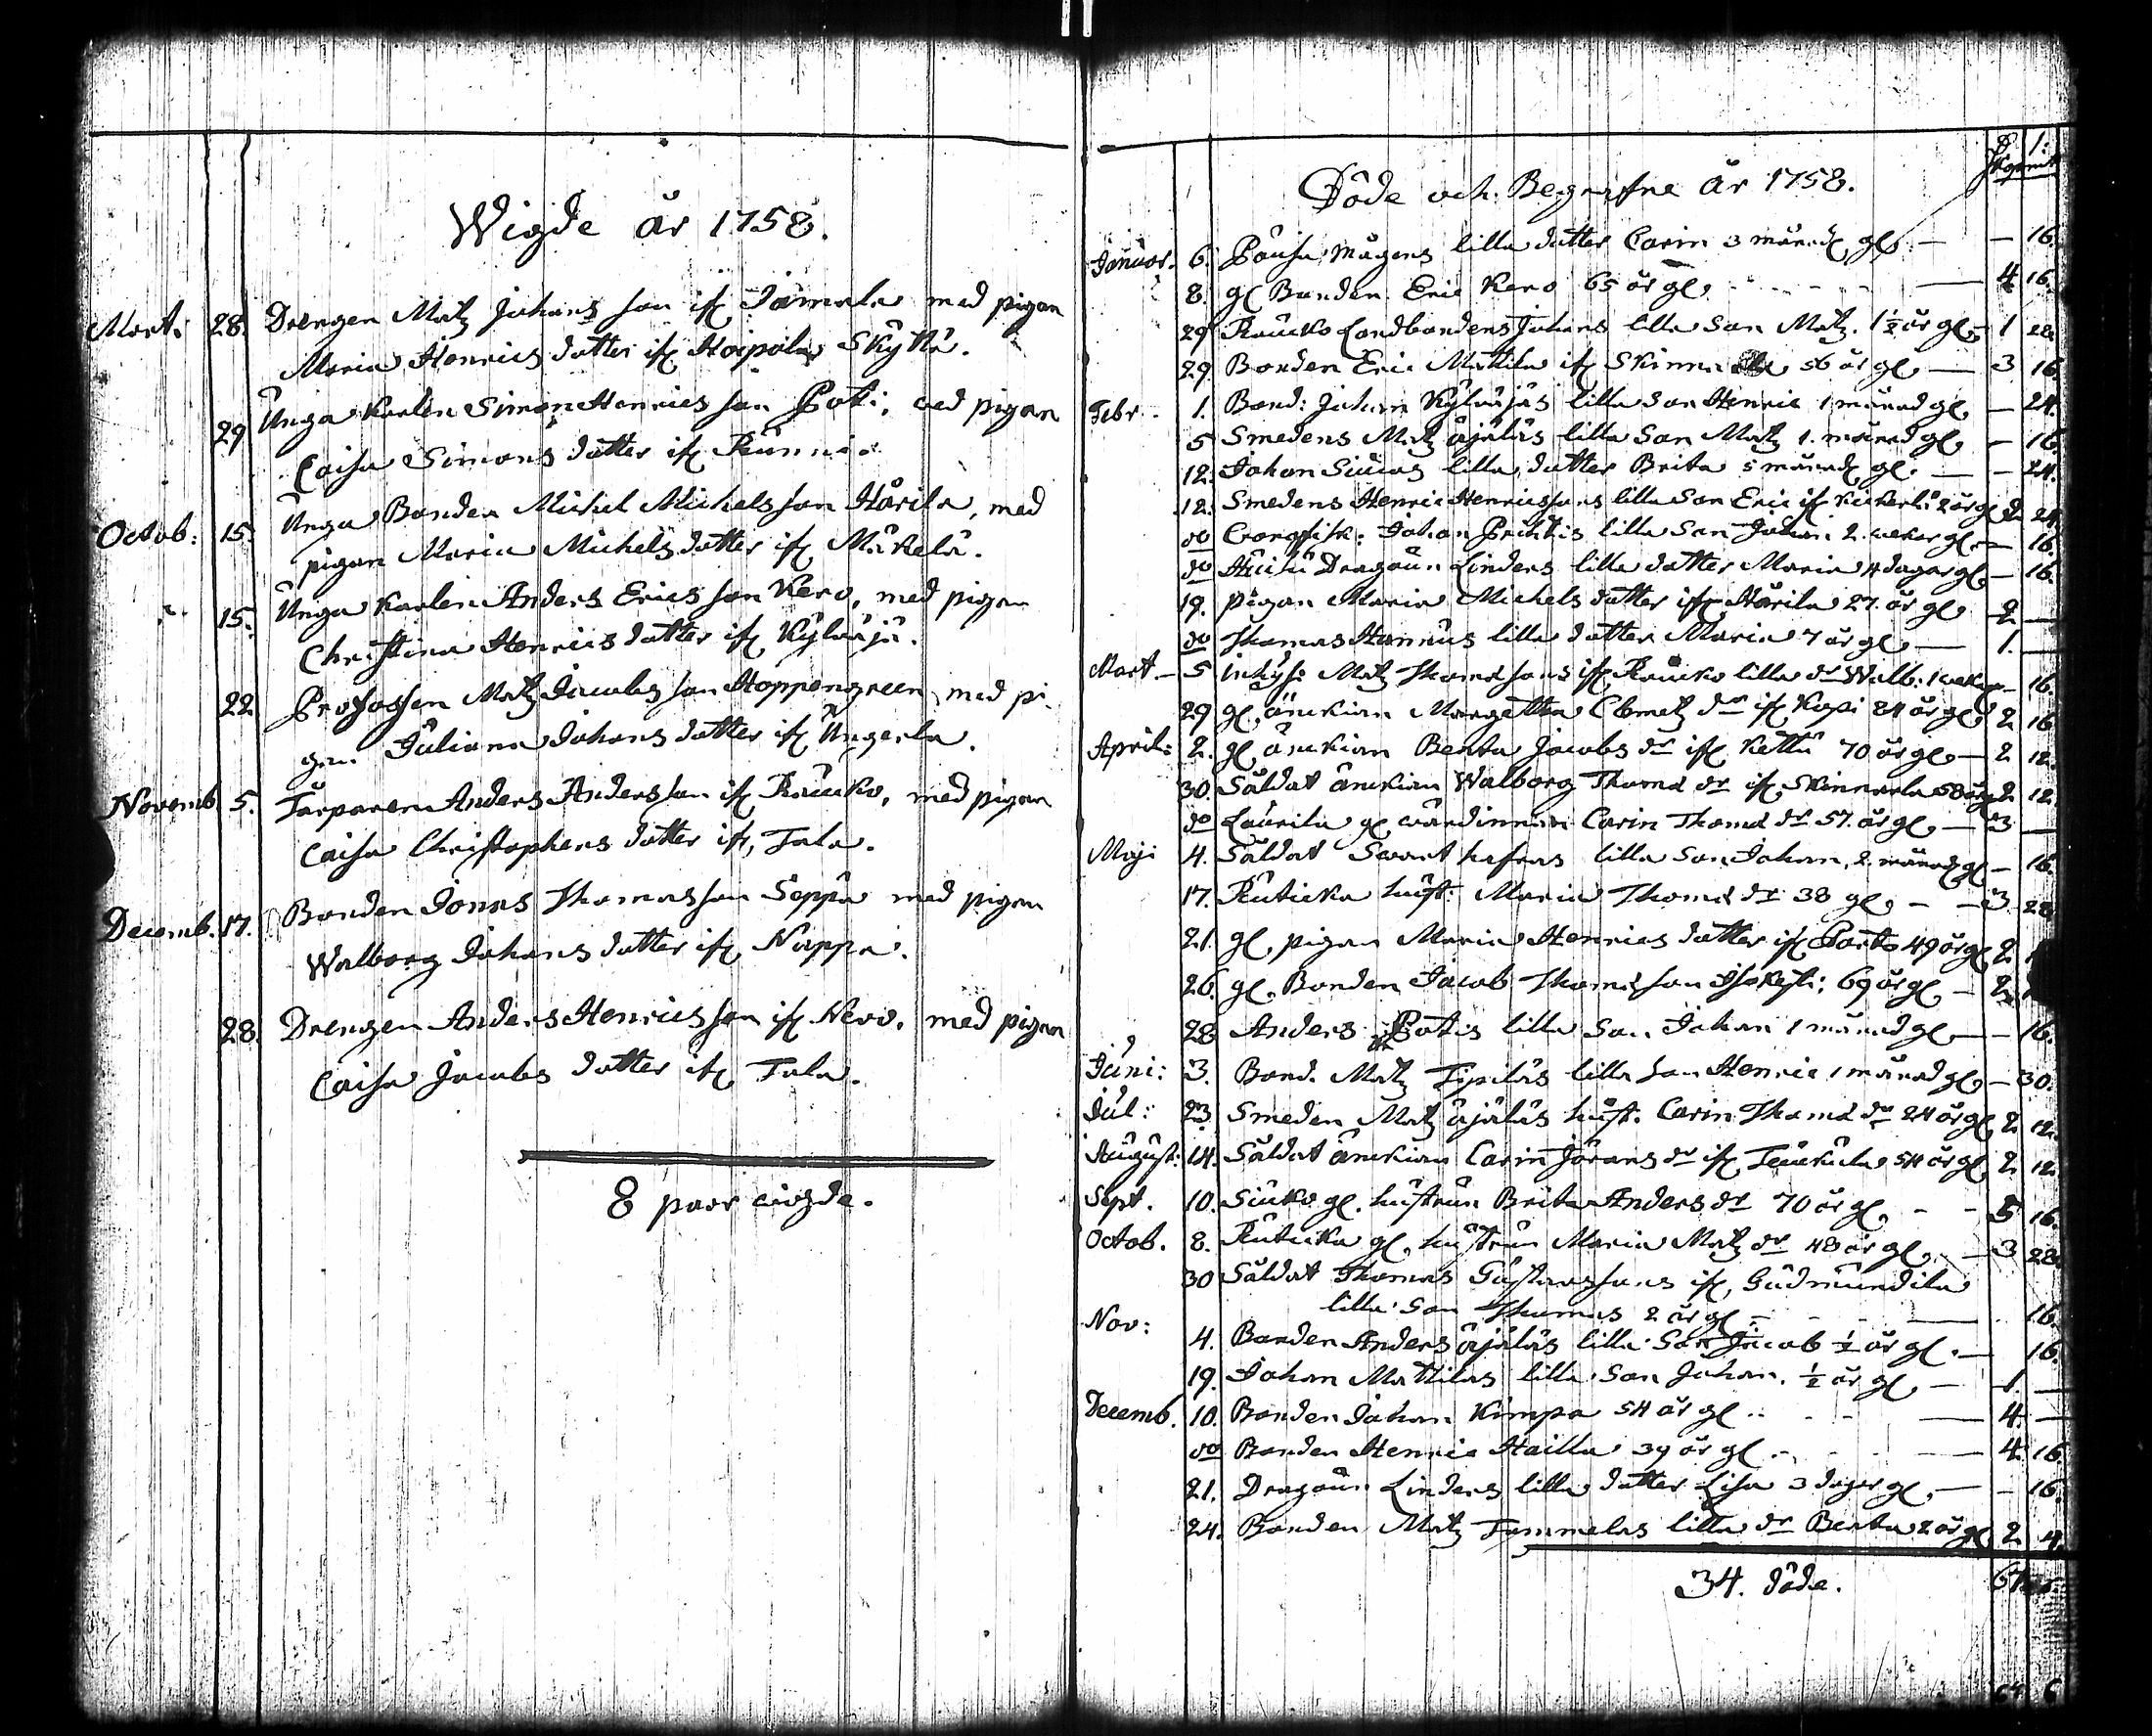 Wigde år 1758.
Marti 28. Drengen Matz Johans son ifr Jämala med pigan
Maria Henrics dotter ifr Hoipola Skÿttä.
29 Unga Karlen Simon Henrics son Poti, med pigan
Caisa Simons dotter ifr
Octob: 15. Unga Bonden Michel Michels son Härila, med
pigan Maria Michels dotter ifr Mäkelä.
15. Unga Karlen Anders Erics son Kero, med pigan
Christina Henrics dotter ifr Kÿlväjä.
22. Profossen Matz Jacobs son Hoppengreen med pi-
gan Juliana Johans dotter ifr Ungerla.
Novemb 5. Torparen Anders Anders son ifr Raucko, med pigan
Caisa Christophers dotter ifr, Tala.
Decemb. 17. Bonden Jonas Thomas son Seppä med pigan
Walborg Johans dotter ifr Nappa.
28. Drengen Anders Henrics son ifr Nero, med pigan
Caisa Jacobs dotter ifr Tala.
8 paar wigde.
Döde och Begrafne år 1758.
Januar. 6. Mågens lilla dotter Carin 3 månad gl. — — 16.
8. gl Bonden Eric Kero 65 år gl. — 4 16.
29 Raucko Landbondens Johans lilla son Matz. 1½ år gl. 1 28
29. Bonden Eric Mattila ifr 56 år gl — 3 16.
Febr. 1. Bond: Johan Kÿlväjäs lilla son Henric 1 månad gl — 24.
5 Smedens Matz äjäläs lilla son Matz 1. månad gl — 16.
12. Johan lilla dotter Brita 5 månad gl. — — 24.
12. Smedens Henric Henricssons lilla son Eric ifr 2 år gl 2 24
do Johan lilla son Johan 2. wekor gl. — 16.
do Dragoun Linders lilla dotter Maria 4 dagar gl — 16.
19. pigan Maria Michels dotter ifr Härila 27. år gl 2 —
do Thomas Hannus lilla dotter Maria 7 år gl — 1. —
Mart — 5 inhÿs: Matz Thomæ sons ifr Raucko lilla dr Walb: 1 weka — 16.
29 gl, änckian Margetha Clemetz dr ifr Kopi 84 år gl 2 16
April: 2. gl änckian Beata Jacobs dr ifr Kettu 70 år gl — 2 12.
30. Såldat änckian Walborg Thomæ dr ifr Skinnarla 58 år 2 12.
do Laurila gl wärdinnan Carin Thomæ dr 57. år gl — 3 —
Maji 4. Såldat Swart hafras lilla son Johan, 2. månad gl — 16.
17. hust: Maria Thomæ dr 38 gl, — 3 28
21. gl, pigan Maria Henrics dotter ifr 49 år gl 2
26. gl. Bonden Jacob Thomæ son 69 år gl — 2
28 Anders Potis lilla son Johan 1 månad gl — 16.
Juni: 3. Bond. Matz lilla son Henric 1 månad gl — 30.
Jul: 23. Smeden Matz äjäläs hust. Carin Thomæ dr 24 år gl 2 12.
August: 14. Såldat änckian Carin Jörans dr ifr 54 år gl 2 12.
Sept. 10. gl. hustrun Brita Anders dr 70 år gl. — 5 16.
Octob. 8. gl. hustrun Maria Matz dr 48 år gl. — 3 28.
30 Såldat Thomas Gustafssons ifr, Gudmundila
lilla son Thomas 2 år gl — 16.
Nov: 4. Bonden Anders äjäläs lilla son Jacob ½ år gl. — 16.
19. Johan Mattilas lilla son Johan. ½ år gl — 1. —
Decemb. 10. Bonden Johan Kimpa 54 år gl — 4. —
do Bonden Henric Hailla 39 år gl — 4 16
21. Dragoun Linders lilla dotter Lisa 3 dagar gl, — 16.
24. Bonden Matz Tammelas lilla dr Beata 2 år gl 2 4.
34. döde.